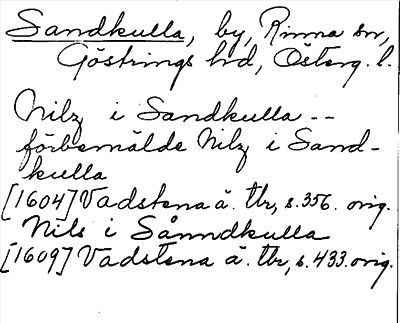 Sandkulla, by, Rinna sn,
Göstrings hd, Österg. l.
Nilz i Sandkulla --
förbemälde Nilz i Sand-
kulla
[1604] Vadstena ä. tbr, s. 356. orig.
Nils i Sånndkulla
[1609] Vadstena ä. tbr, s. 433. orig.